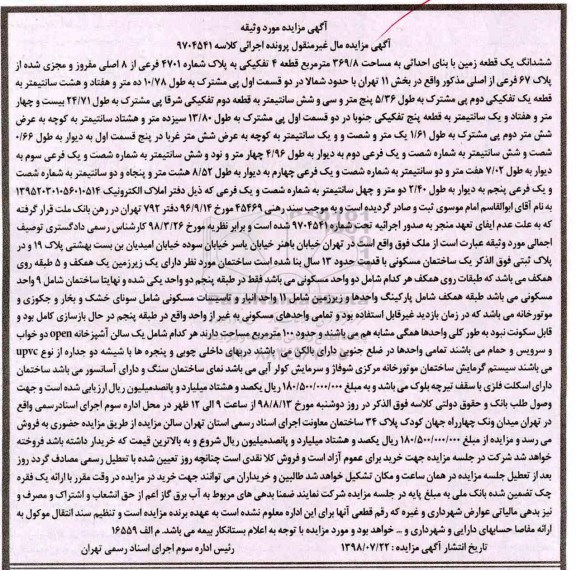 آگهی مزایده مورد وثیقه
آگهی مزایده مال غیرمنقول پرونده اجرائی کلاسه ۹۷۰۴۵۴۱
ششدانگ یک قطعه زمین با بنای احداثی به مساحت ۳۶۹/۸ مترمربع قطعه ۴ تفکیکی به پلاک شماره ۴۷۰۱ فرعی از ۸ اصلی مفروز و مجزی شده از
پلاک ۶۷ فرعی از اصلی مذکور واقع در بخش ۱۱ تهران با حدود شمالا در دو قسمت اول پی مشترک به طول ۱۰/۷۸ ده متر و هفتاد و هشت سانتیمتر به
قطعه یک تفکیکی دوم پی مشترک به طول ۵/۳۶ پنج متر و سی و شش سانتیمتر به قطعه دوم تفکیکی شرقا پی مشترک به طول ۲۴/۷۱ بیست و چهار
متر و هفتاد و یک سانتیمتر به قطعه پنج تفکیکی جنوبا در دو قسمت اول پی مشترک به طول ۱۳/۸۰ سیزده متر و هشتاد سانتیمتر به کوچه به عرض
شش متر دوم پی مشترک به طول ۱/۶۱ یک متر و شصت و و یک سانتیمتر به کوچه به عرض شش متر غربا در پنج قسمت اول به دیوار به طول ۰/۶۶
شصت و شش سانتیمتر به شماره شصت و یک فرعی دوم به دیوار به طول ۴/۹۶ چهار متر و نود و شش سانتیمتر به شماره شصت و یک فرعی سوم به
دیوار به طول ۷/۰۲ هفت متر و دو سانتیمتر به شماره شصت و یک فرعی چهارم به دیوار به طول ۸/۵۲ هشت متر و پنجاه و دو سانتیمتر به شماره شصت
و یک فرعی پنجم به دیوار به طول ۲/۴۰ دو متر و چهل سانتیمتر به شماره شصت و یک فرعی که ذیل دفتر املاک الکترونیک ۱۳۹۵۲۰۳۰۱۰۵۶۰۱۰۵۱۴
به نام آقای ابوالقاسم امام موسوی ثبت و صادر گردیده است و به موجب سند رهنی ۴۵۴۶۹ مورخ ۹۶/۹/۱۴ دفتر ۷۹۲ تهران در رهن بانک ملت قرار گرفته
که به علت عدم ایفای تعهد منجر به صدور اجرائیه تحت شماره ۹۷۰۴۵۴۱ شده است و برابر نظریه مورخ ۹۸/۳/۲۶ کارشناس رسمی دادگستری توصیف
اجمالی مورد وثیقه عبارت است از ملک فوق واقع است در تهران خیابان باهنر خیابان یاسر خیابان سوده خیابان امیدیان بن بست بهشتی پلاک ۱۹ و در
پلاک ثبتی فوق الذکر یک ساختمان مسکونی با قدمت حدود ۱۳ سال بنا شده است ساختمان مورد نظر دارای یک زیرزمین یک همکف و ۵ طبقه روی
همکف می باشد که طبقات روی همکف هر کدام شامل دو واحد مسکونی می باشد فقط در طبقه پنجم دو واحد یکی شده و نهایتا ساختمان شامل ۹ واحد
مسکونی می باشد طبقه همکف شامل پارکینگ واحدها و زیرزمین شامل ۱۱ واحد انبار و تاسیسات مسکونی شامل سونای خشک و بخار و جکوزی و
موتورخانه می باشد که در زمان بازدید غیرقابل استفاده بود و تمامی واحدهای مسکونی به غیر از واحد واقع در طبقه پنجم در حال بازسازی کامل بود و
قابل سکونت نبود به طور کلی واحدها همگی مشابه هم می باشند و حدود ۱۰۰ مترمربع مساحت دارند هر کدام شامل یک سالن آشپزخانه open دو خواب
و سرویس و حمام می باشند تمامی واحدها در ضلع جنوبی دارای بالکن می باشند دربهای داخلی چوبی و پنجره ها با شیشه دو جداره از نوع upvc
می باشند سیستم گرمایش ساختمان موتورخانه مرکزی شوفاژ و سرمایش کولر آبی می باشد نمای ساختمان سنگ و دارای آسانسور می باشد ساختمان
دارای اسکلت فلزی با سقف تیرچه بلوک می باشد و به مبلغ ۱۸۰/۵۰۰/۰۰۰/۰۰۰ ریال یکصد و هشتاد میلیارد و پانصدمیلیون ریال ارزیابی شده است و جهت
وصول طلب بانک و حقوق دولتی کلاسه فوق الذکر در روز دوشنبه مورخ ۹۸/۸/۱۳ از ساعت ۹ الی ۱۲ ظهر در محل اداره سوم اجرای اسنادرسمی واقع
در تهران میدان ونک چهارراه جهان کودک پلاک ۳۴ ساختمان معاونت اجرای اسناد رسمی استان تهران سالن مزایده از طریق مزایده حضوری به فروش
می رسد و مزایده از مبلغ ۱۸۰/۵۰۰/۰۰۰/۰۰۰ ریال یکصد و هشتاد میلیارد و پانصدمیلیون ریال شروع و به بالاترین قیمت که خریدار داشته باشد فروخته
خواهد شد شرکت در جلسه مزایده جهت خرید برای عموم آزاد است و فروش کلا نقدی است چنانچه روز تعیین شده با تعطیل رسمی مصادف گردد روز
بعد از تعطیل جلسه مزایده در همان ساعت و مکان تشکیل خواهد شد طالبین و خریداران می توانند جهت خرید در مزایده در وقت مقرر با ارائه یک فقره
چک تضمین شده بانک ملی به مبلغ پایه در جلسه مزایده شرکت نمایند ضمنا بدهی های مربوط به آب برق گاز اعم از حق انشعاب و اشتراک و مصرف و
نیز بدهی مالیاتی عوارض شهرداری و غیره که رقم قطعی آنها برای این اداره معلوم نشده است به عهده برنده مزایده است و تنظیم سند انتقال موکول به
ارائه مفاصا حسابهای دارایی و شهرداری و ... خواهد بود و مورد مزایده با توجه به اعلام بستانکار بیمه می باشد. م الف ۱۶۵۵۹
تاریخ انتشار آگهی مزایده : ۱۳۹۸/۰۷/۲۲
رئیس اداره سوم اجرای اسناد رسمی تهران